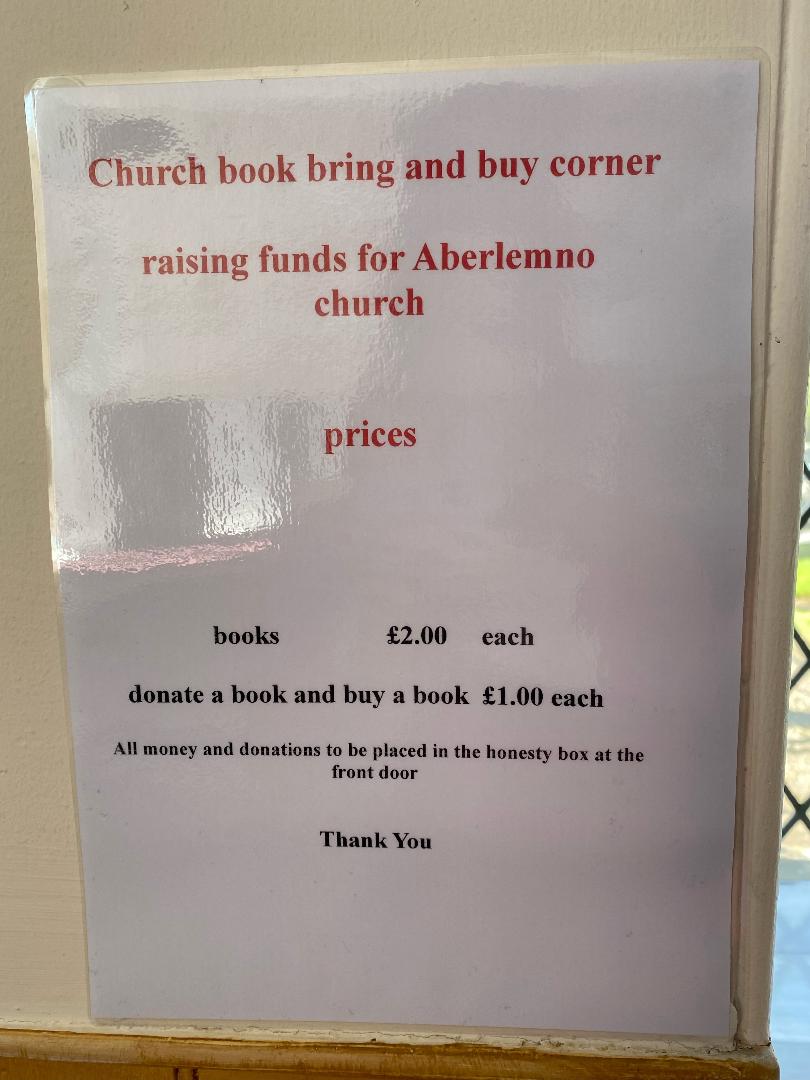 Church book bring and buy corner
raising funds for Aberlemno
church
prices
books £2.00 each
donate a book and buy a book £1.00 each
All money and donations to be placed in the honesty box at the
front door
Thank You